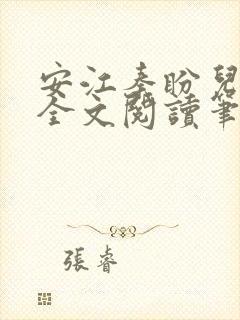 安江秦盼兒
全文閱讀筆
張睿